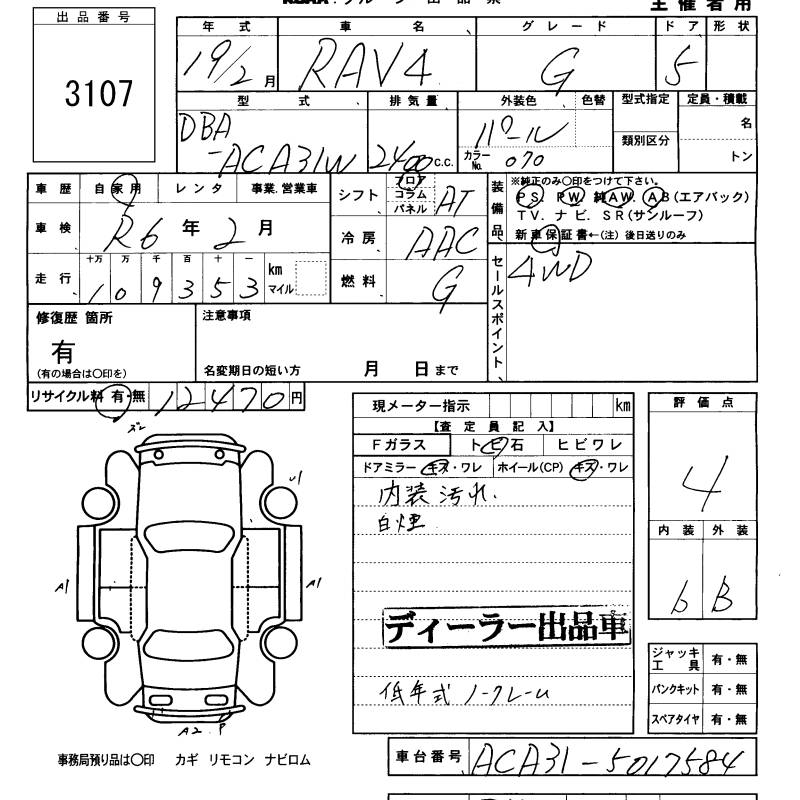 出品番号
3107
主催者用
年式 車名 グレード ドア 形状
19/2月 RAV4 G 5
型式 排気量 外装色 色替 型式指定 定員・積載
DBA
-ACA31W 2400c.c. パール 類別区分 名
カラーNo. 070 トン
車歴 自家用 レンタ 事業.営業車
シフト フロア コラム パネル AT
装備品 ※純正のみ〇印をつけて下さい。
PS. PW. 純AW. AB(エアバック)
TV. ナビ. SR(サンルーフ)
新車保証書←(注)後日送りのみ
車検 R6年2月
冷房 AAC
走行 十万 万 千 百 十 一
109353 km マイル
燃料 G
セールスポイント、 4WD
修復歴 箇所
有
(有の場合は〇印を)
注意事項
名変期日の短い方 月 日まで
リサイクル料 有・無 12470円
現メーター指示 km
【査定員記入】
Fガラス トビ石 ヒビワレ
ドアミラー キズ・ワレ ホイール(CP) キズ・ワレ
内装汚れ.
白煙
ディーラー出品車
低年式 ノークレーム
評価点
4
内装 外装
b B
A1 A1
A2. P
ジャッキ工具 有・無
パンクキット 有・無
スペアタイヤ 有・無
事務局預り品は〇印 カギ リモコン ナビロム
車台番号 ACA31-5017584